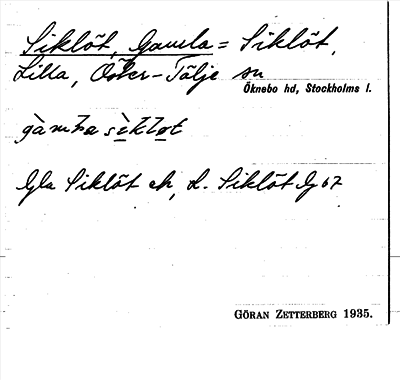 Siklöt, Gamla = Siklöt,
Lilla, Öster-Tälje sn
Öknebo hd, Stockholms l.
Gla Siklöt ek, L. Siklöt G 67
GÖRAN ZETTERBERG 1935.